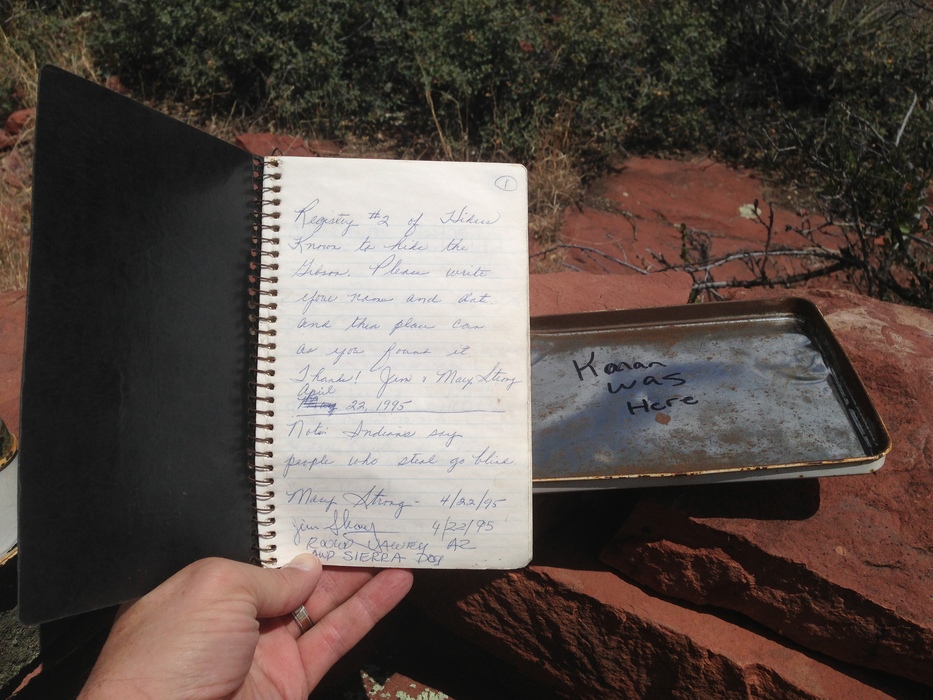 1
Registry #2 of Hikers
Known to hike the
Gibson. Please write
your name and dat.
and then place can
as you found it
Thanks! Jim & Mary Strong
April
22, 1995
Note: Indians say
people who steal go blind
Mary Strong - 4/22/95
Jim Strong 4/22/95
AZ
AND SIERRA DOG
was
Here